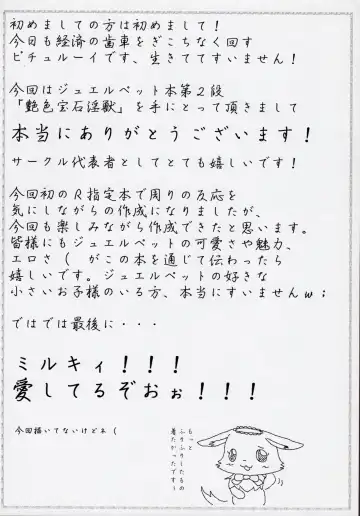 初めましての方は初めまして！
今日も経済の歯車をぎこちなく回す
ピチュルーイです、生きててすいません！
今回はジュエルペット本第2段
「艶色宝石淫獣」を手にとって頂きまして
本当にありがとうございます！
サークル代表者としてとても嬉しいです！
今回初のR指定本で周りの反応を
気にしながらの作成になりましたが、
今回も楽しみながら作成できたと思います。
皆様にもジュエルペットの可愛さや魅力、
エロさ（ がこの本を通じて伝わったら
嬉しいです。ジュエルペットの好きな
小さいお子様のいる方、本当にすいませんw；
ではでは最後に・・・
ミルキィ！！！
愛してるぞおぉ！！！
今回描いてないけどネ（
もっと
ふりふりしたもの
着たかったですぅ